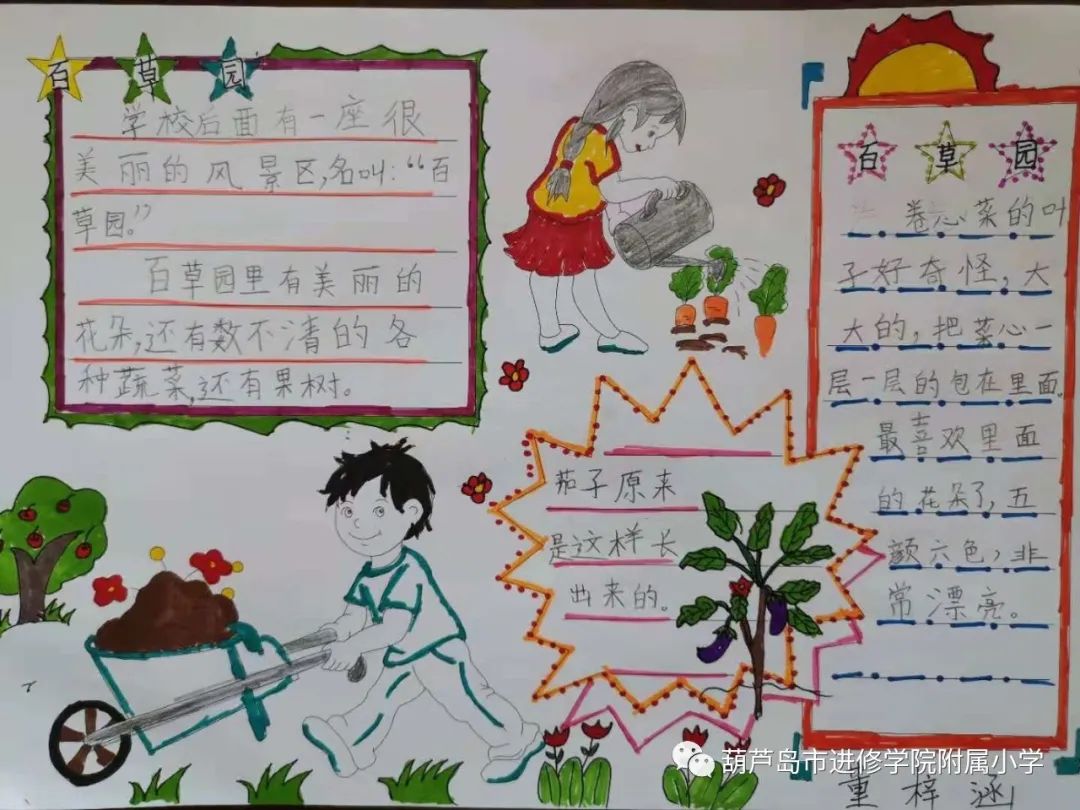 百草园
学校后面有一座很
美丽的风景区,名叫:“百
草园。”
百草园里有美丽的
花朵,还有数不清的各
种蔬菜,还有果树。
茄子原来
是这样长
出来的。
百草园
卷心菜的叶
子好奇怪,大
大的,把菜心一
层一层的包在里面。
最喜欢里面
的花朵了,五
颜六色,非
常漂亮。
葫芦岛市进修学院附属小学